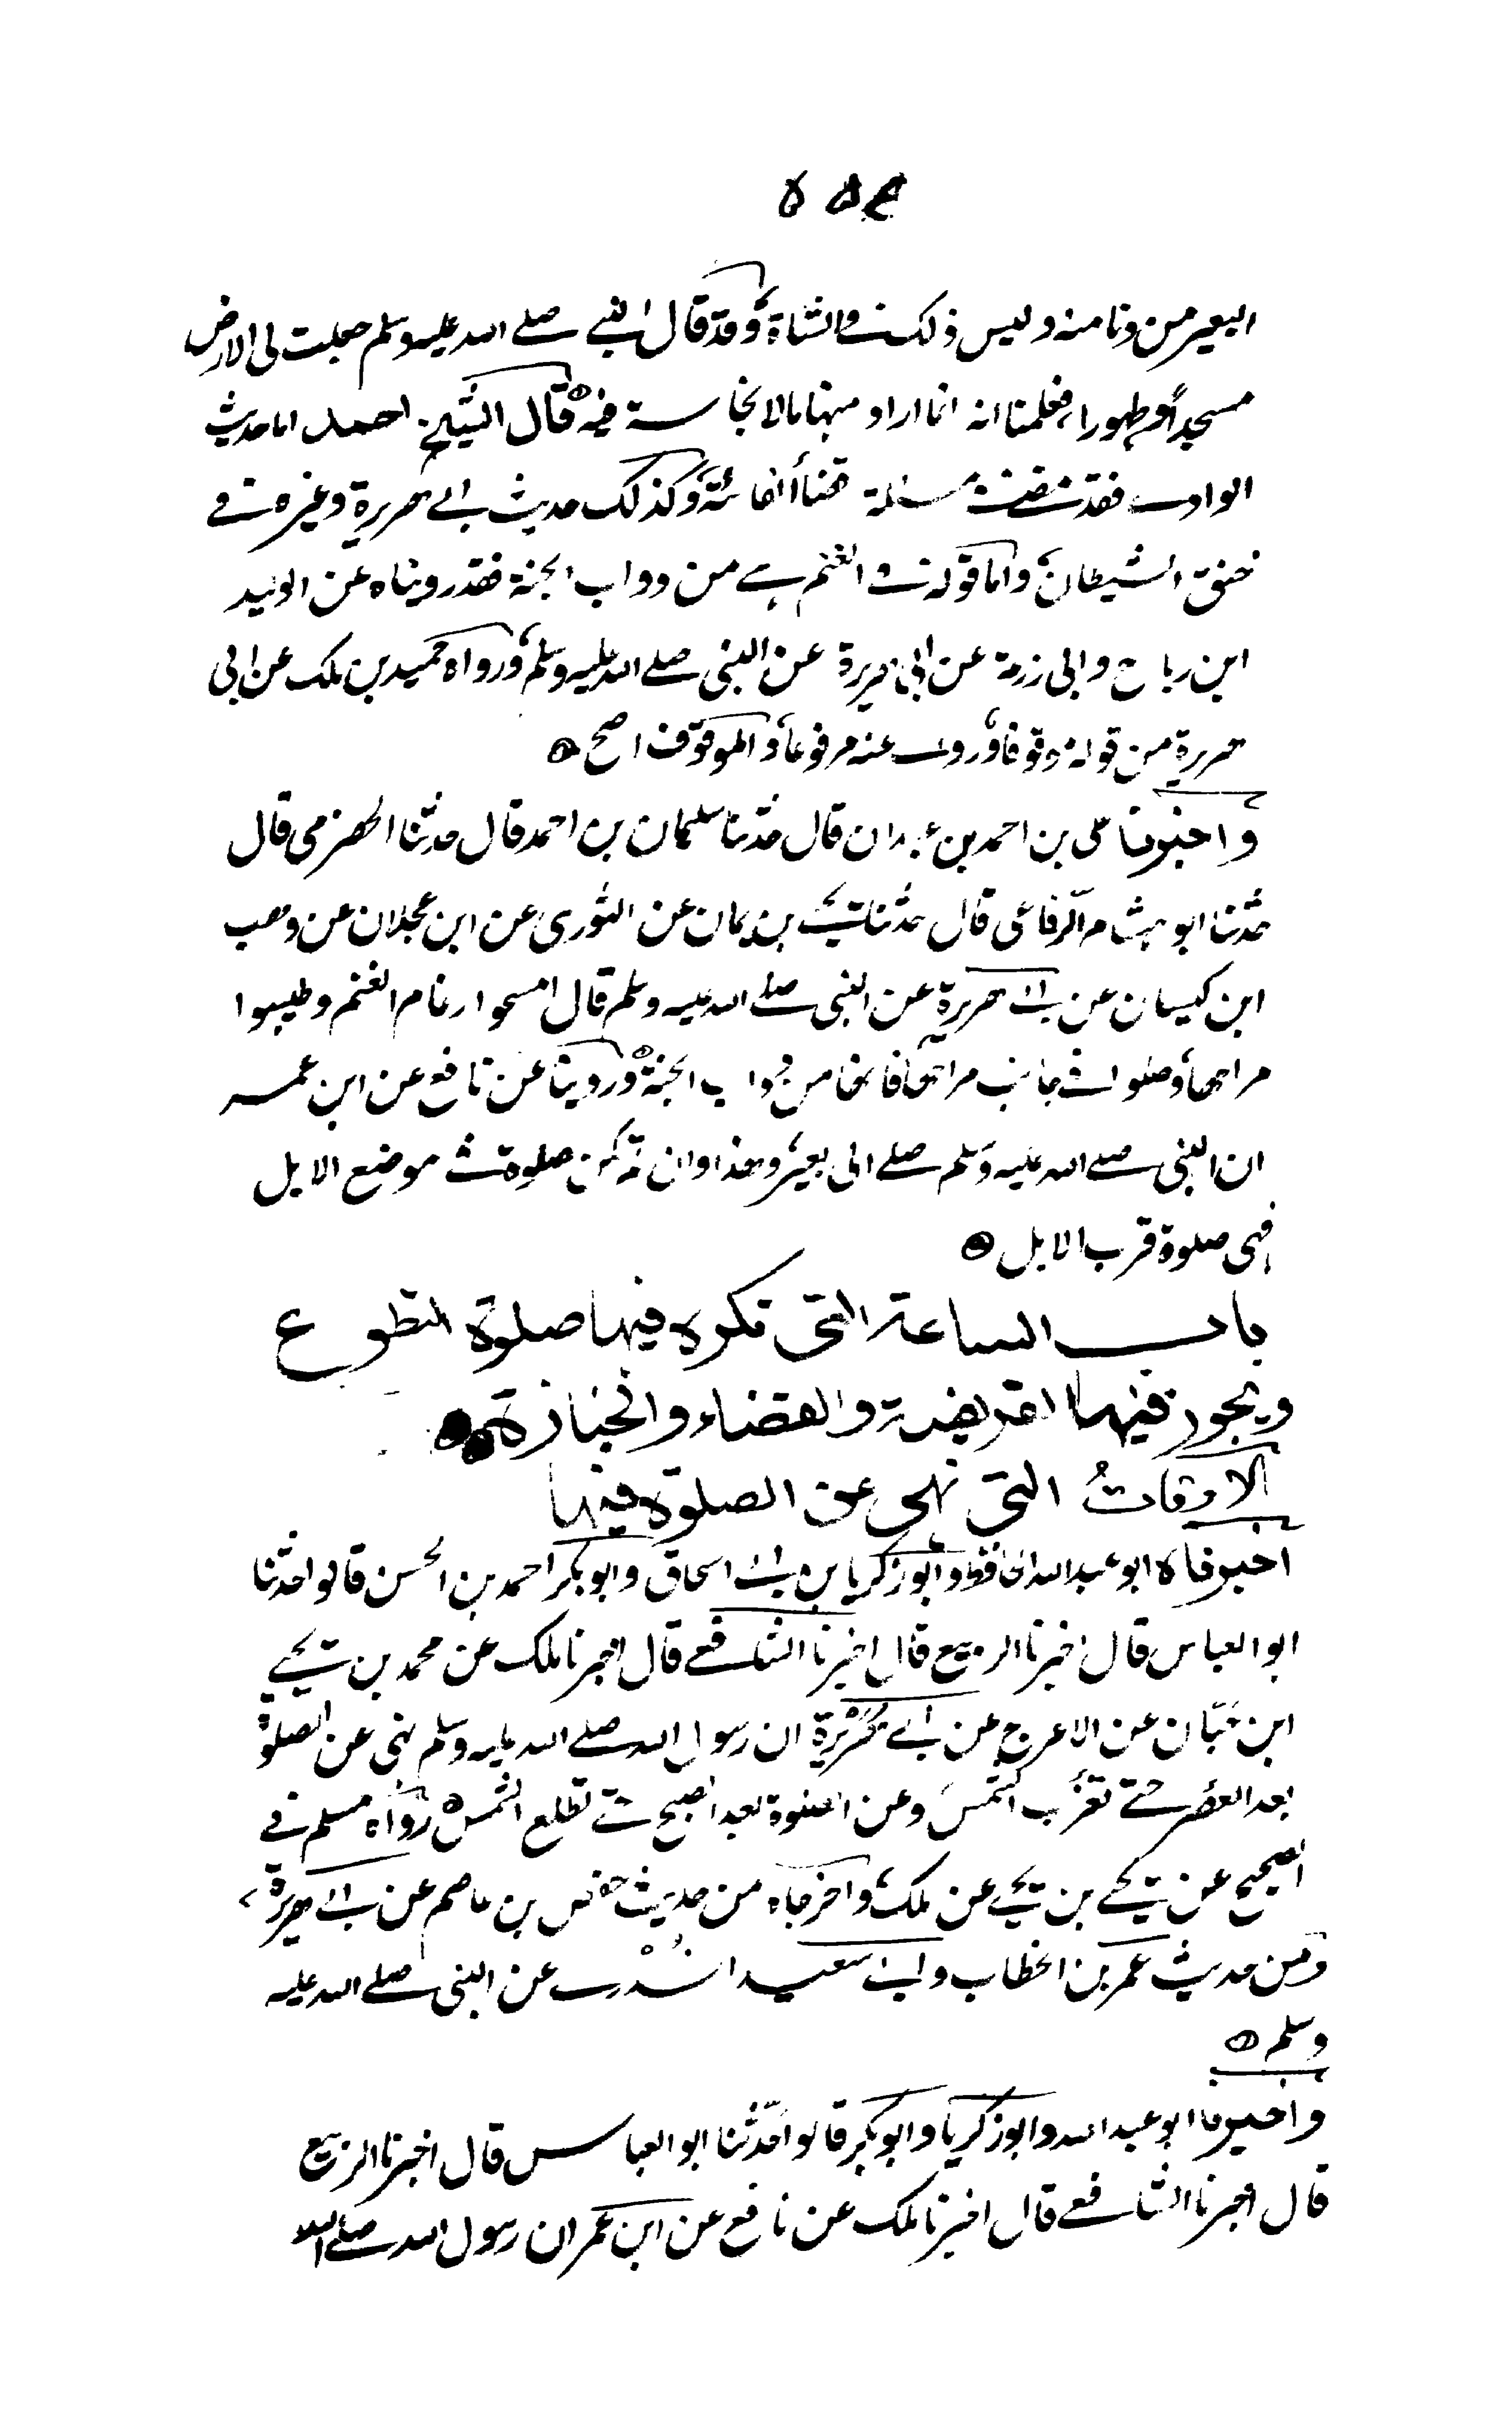 ۵۵۴
البعير من دنا منه وليس ذلك في الشاة وقد قال النبي صلى الله عليه وسلم جعلت لي الارض
مسجداً وطهورا، فعلمنا انه انما اراد منها مالا نجاسة فيه ۞ قال الشيخ احمد اما حديث
الوادي فقد مضت مسئلة قضاء الفائتة، وكذلك حديث ابي هريرة وغيره في
خنق الشيطان، واما قوله في الغنم هي من دواب الجنة فقد رويناه عن الوليد
ابن رباح وابي زرعة عن ابي هريرة عن النبي صلى الله عليه وسلم، ورواه حميد بن ملك عن ابي
هريرة من قوله موقوفاً وروى عنه مرفوعاً، والموقوف اصح ۞
واخبرنا علي بن احمد بن عبدان قال حدثنا سليمان بن احمد قال حدثنا الحضرمي قال
حدثنا ابو هشام الرفاعي قال حدثنا يحيى بن يمان عن الثوري عن ابن عجلان عن وهب
ابن كيسان عن ابي هريرة عن النبي صلى الله عليه وسلم قال امسحوا رغام الغنم وطيبوا
مراحها، وصلوا في جانب مراحها فانها من دواب الجنة ۞ وروينا عن نافع عن ابن عمر
ان النبي صلى الله عليه وسلم صلى الى بعير، وهذا وان لم تكن صلوة في موضع الابل
فهي صلوة قرب الابل ۞
باب الساعة التي تكره فيها صلوة التطوع
ويجوز فيها الفريضة والقضاء والجنازة ۞
الاوقات التي نهى عن الصلوة فيها
اخبرناه ابو عبد الله الحافظ وابو زكريا بن ابي اسحاق وابو بكر احمد بن الحسن قالوا حدثنا
ابو العباس قال اخبرنا الربيع قال اخبرنا الشافعي قال اخبرنا ملك عن محمد بن يحيى
ابن حبّان عن الاعرج عن ابي هُرَيْرة ان رسول الله صلى الله عليه وسلم نهى عن الصلوة
بعد العصر حتى تغرب الشمس وعن الصلوة بعد الصبح حتى تطلع الشمس ۞ رواه مسلم في
الصحيح عن يحيى بن يحيى عن ملك، واخرجاه من حديث حفص بن عاصم عن ابي هريرة،
ومن حديث عمر بن الخطاب وابي سعيد الخدري عن النبي صلى الله عليه
وسلم ۞
واخبرنا ابو عبد الله وابو زكريا وابو بكر قالوا حدّثنا ابو العباس قال اخبرنا الربيع
قال اخبرنا الشافعي قال اخبرنا ملك عن نافع عن ابن عمر ان رسول الله صلى الله